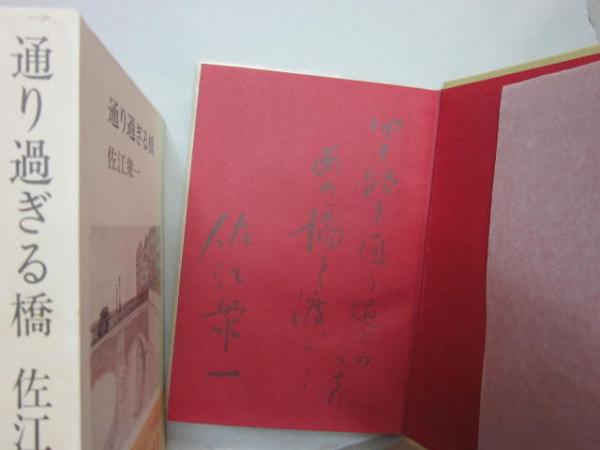 通り過ぎる橋 佐江
通り過ぎる橋
佐江衆一
通り過ぎ
あの橋を渡った
佐江衆一